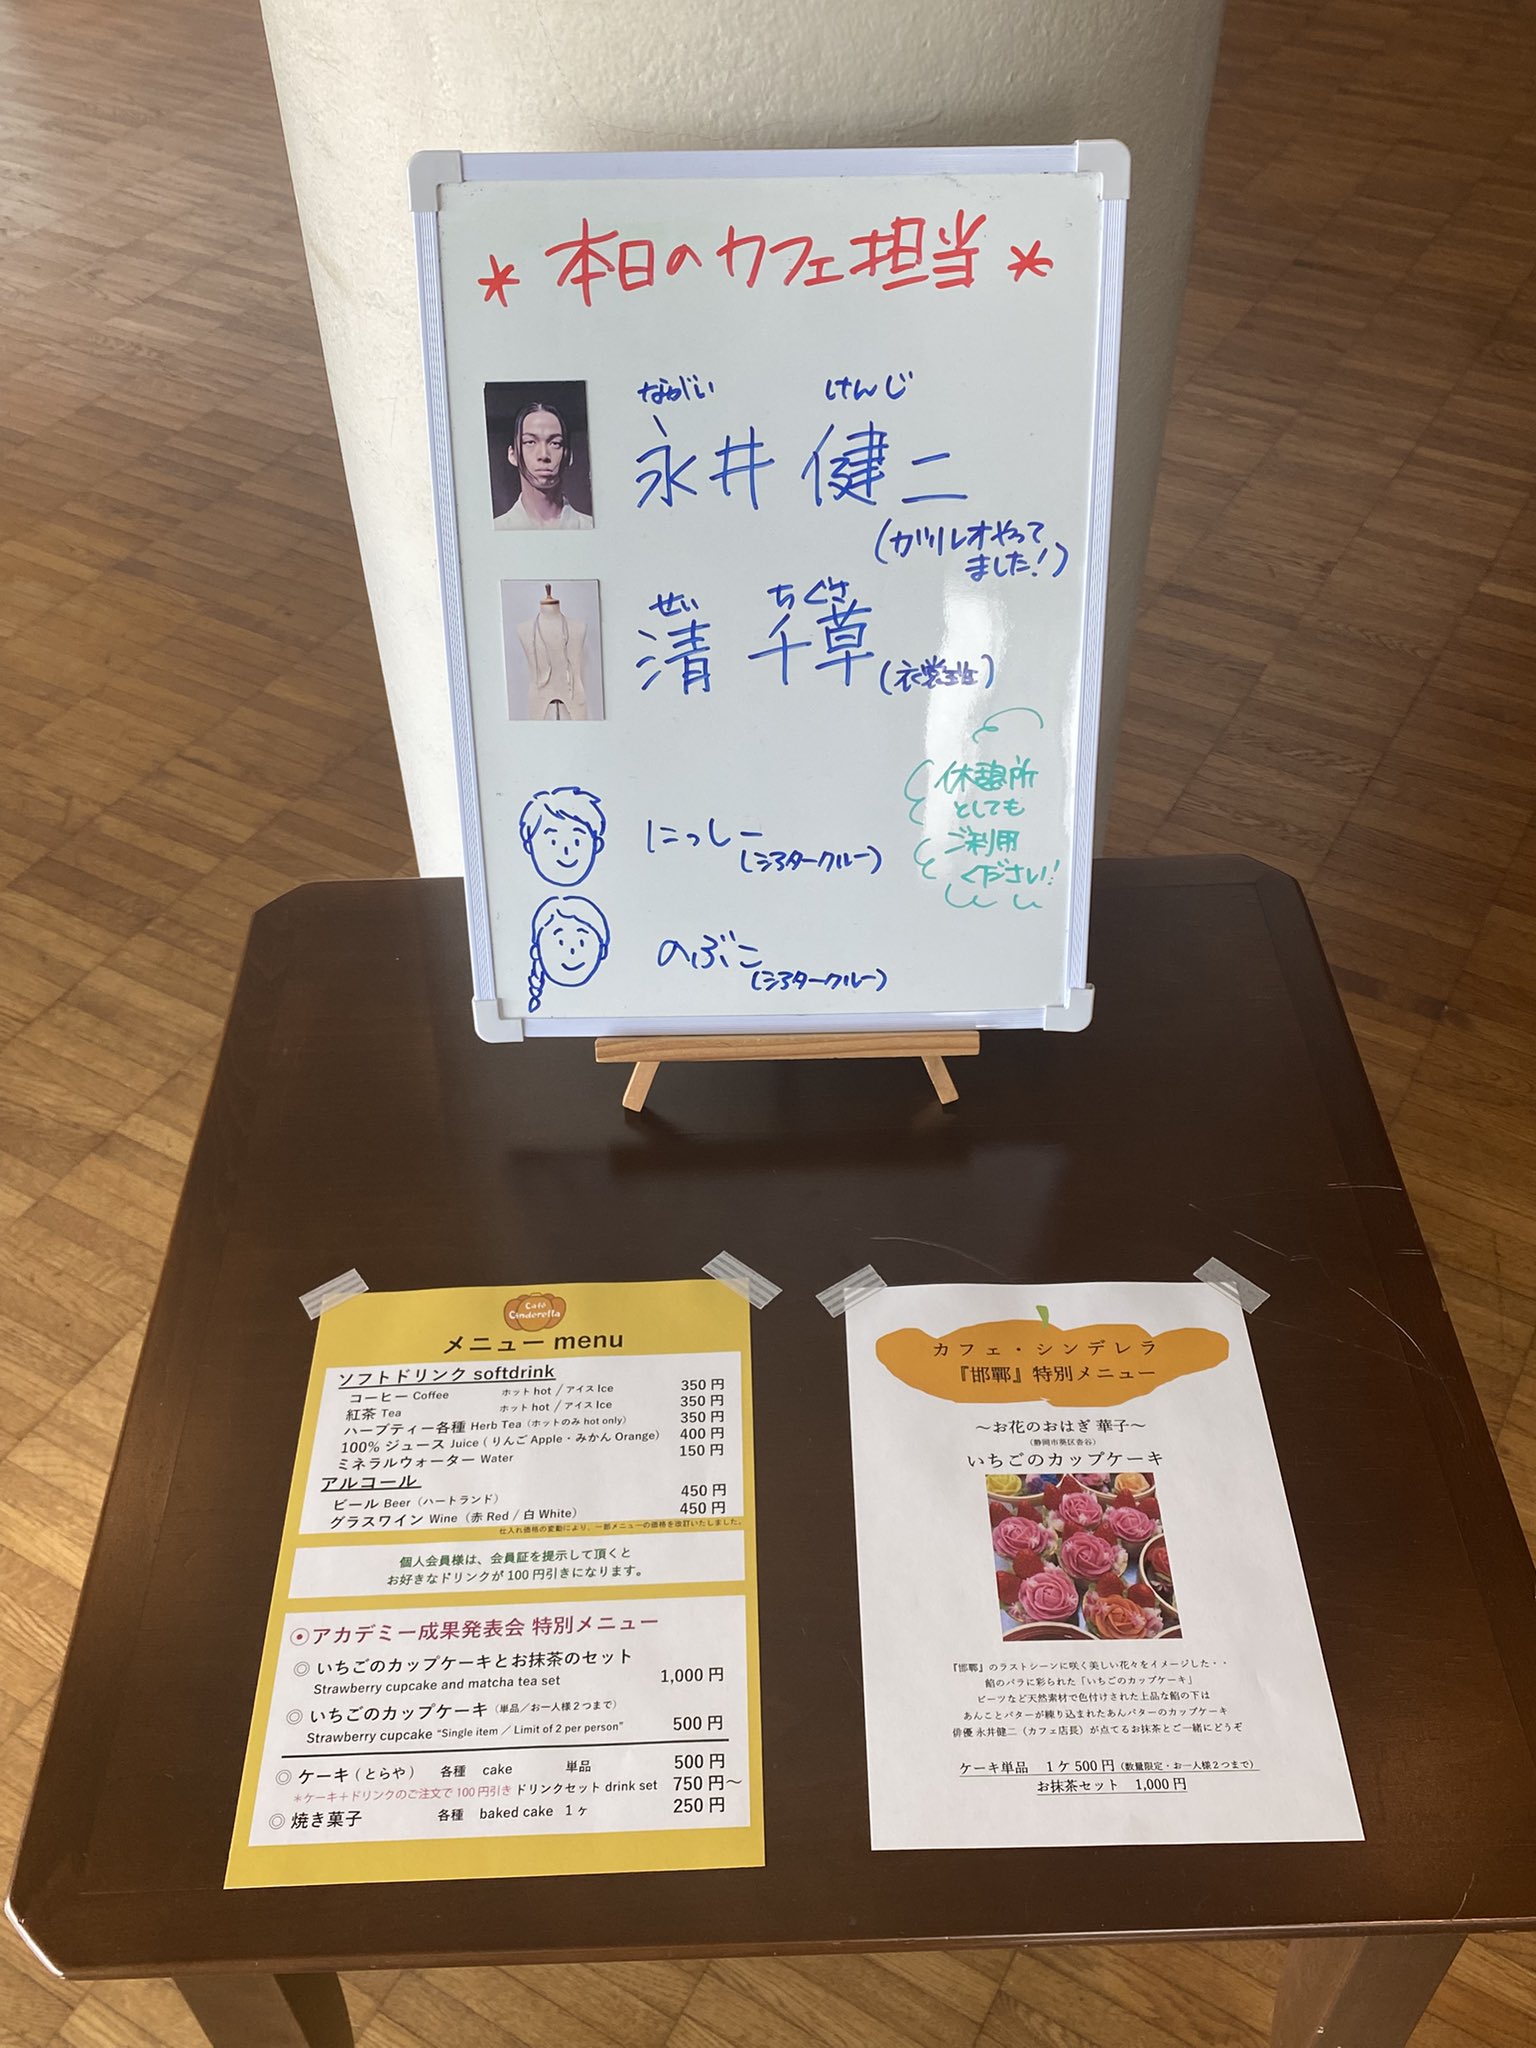 ＊本日のカフェ担当＊
ながい けんじ
永井 健二
(ガリレオやって
ました!)
せい ちぐさ
清 千草(衣装班)
休憩所
としても
ご利用
ください!
にっしー
(シアタークルー)
のぶこ
(シアタークルー)
Café
Cinderella
メニュー menu
ソフトドリンク softdrink
コーヒー Coffee ホット hot / アイス Ice 350 円
紅茶 Tea ホット hot / アイス Ice 350 円
ハーブティー各種 Herb Tea（ホットのみ hot only） 350 円
100% ジュース Juice ( りんご Apple・みかん Orange) 400 円
ミネラルウォーター Water 150 円
アルコール
ビール Beer（ハートランド） 450 円
グラスワイン Wine（赤 Red / 白 White） 450 円
仕入れ価格の変動により、一部メニューの価格を改訂いたしました。
個人会員様は、会員証を提示して頂くと
お好きなドリンクが 100 円引きになります。
⦿アカデミー成果発表会 特別メニュー
◎ いちごのカップケーキとお抹茶のセット
Strawberry cupcake and matcha tea set 1,000 円
◎ いちごのカップケーキ（単品／お一人様２つまで）
Strawberry cupcake “Single item ／ Limit of 2 per person” 500 円
◎ ケーキ ( とらや ) 各種 cake 単品 500 円
＊ケーキ＋ドリンクのご注文で 100 円引き ドリンクセット drink set 750 円〜
◎ 焼き菓子 各種 baked cake 1 ヶ 250 円
カフェ・シンデレラ
『邯鄲』特別メニュー
〜お花のおはぎ 華子〜
（静岡市葵区沓谷）
いちごのカップケーキ
『邯鄲』のラストシーンに咲く美しい花々をイメージした・・
餡のバラに彩られた「いちごのカップケーキ」
ビーツなど天然素材で色付けされた上品な餡の下は
あんことバターが練り込まれたあんバターのカップケーキ
俳優 永井健二（カフェ店長）が点てるお抹茶とご一緒にどうぞ
ケーキ単品 １ケ 500 円（数量限定・お一人様２つまで）
お抹茶セット 1,000 円